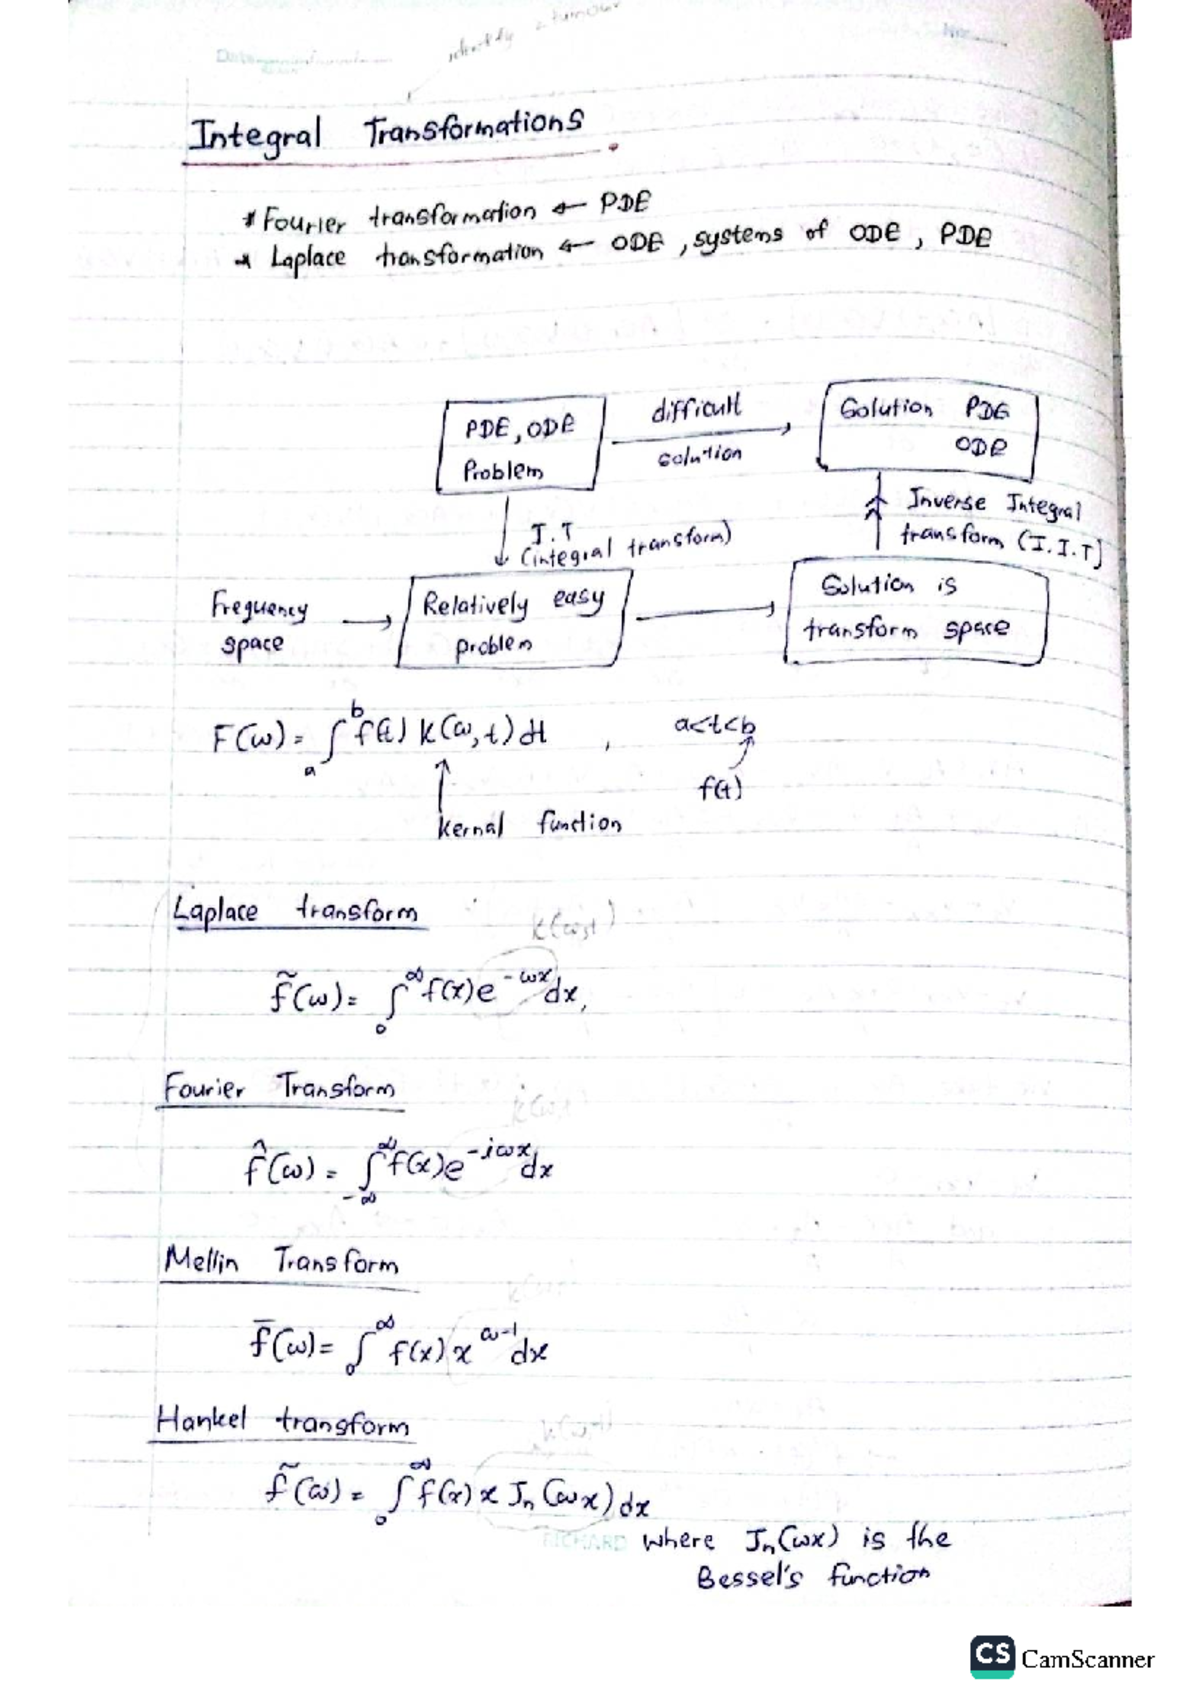 Date
No:
identify
Integral Transformations
* Fourier transformation ← PDE
* Laplace transformation ← ODE, systems of ODE, PDE
PDE, ODE
Problem
difficult
solution
Solution PDE
ODE
I.T
(integral transform)
Inverse Integral
transform (I.I.T)
Frequency
space
Relatively easy
problem
Solution is
transform space
F(ω) = ∫_a^b f(t) k(ω,t) dt , a<t<b
f(t)
kernal function
Laplace transform
k(ω,t)
f̃(ω) = ∫_0^∞ f(x)e^{-ωx}dx,
Fourier Transform
k(ω,t)
f̂(ω) = ∫_{-∞}^∞ f(x)e^{-iωx}dx
Mellin Transform
f̄(ω) = ∫_0^∞ f(x) x^{ω-1} dx
Hankel transform
f̃(ω) = ∫_0^∞ f(x) x J_n(ωx) dx
RICHARD
where J_n(ωx) is the
Bessel's function
CS CamScanner